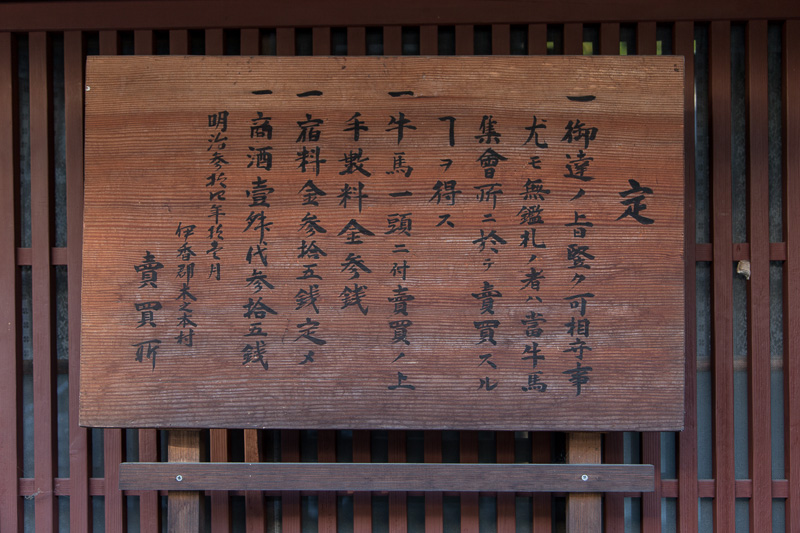 定
一御達ノ旨堅ク可相守事
尤モ無鑑札ノ者ハ當牛馬
集會所ニ於テ賣買スル
ヿヲ得ス
一牛馬一頭ニ付賣買ノ上
手数料金参銭
一宿料金参拾五銭定メ
一商酒壹舛代参拾五銭
明治参拾四年拾壹月
伊香郡木之本村
賣買所